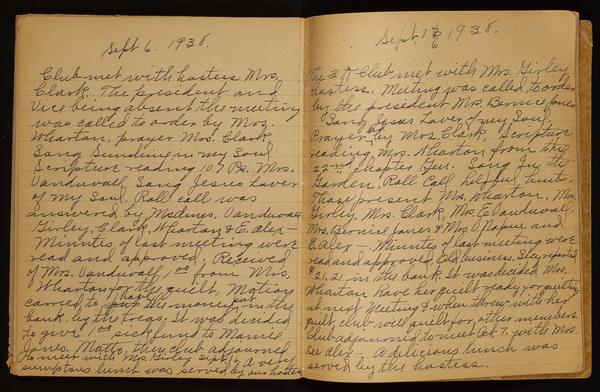 Sept 6. 1938.
Club met with hostess Mrs.
Clark. The president and
Vice being absent the meeting
was called to order by Mrs.
Wharton, prayer Mrs. Clark
Song Sunshine in my Soul
Scripture reading 107 Ps. Mrs.
Vanduvall, Song Jesus Lover
of My Soul, Roll call was
answered by Mesdmes, Vanduvall
Girley, Clark, Wharton & E. Alex —
Minutes of last meeting were
read and approved, Received
of Mrs. Vanduvall, 1.00 from Mrs.
Wharton for the quilt, Motion
carried to have the money put in the
bank by the treas, It was decided
to give 1.00 sick fund to Mamie
Jones. Motto, the club adjourned
to meet with Mrs. Girley Sept. 16 A very
sumptous lunch was served by our hostess
Sept. 16 1938.
The 3 A Club met with Mrs. Girley
hostess. Meeting was called to order
by the president Mrs. Bernice Jones
Song Jesus Lover of my Soul,
Prayer by Mrs. Clark, Scripture
reading Mrs. Wharton from the
22nd Chapter Gen. Song In the
Garden, Roll Call helpful hints.
Those present Mrs. Wharton, Mrs.
Girley, Mrs. Clark, Mrs. E. Vanduvall
Mrs. Bernice Jones & Mrs. and
E. Alex —. Minutes of last meeting were
read and approved, Old business. They reported
$21.21 in the bank. It was decided Mrs.
Wharton have her quilt ready for quilting
at next meeting & when through with her
quilt, club will quilt for other members
Club adjourned to meet Oct. 7, with Mrs.
Alex — A delicious lunch was
served by the hostess.